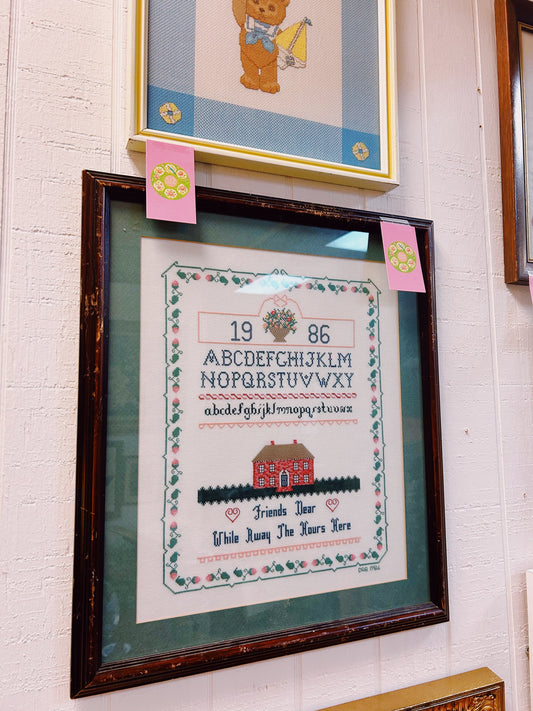 1986
ABCDEFGHIJKLM
NOPQRSTUVWXY
abcdefghijklmnopqrstuvwx
Friends Dear
While Away The Hours Here